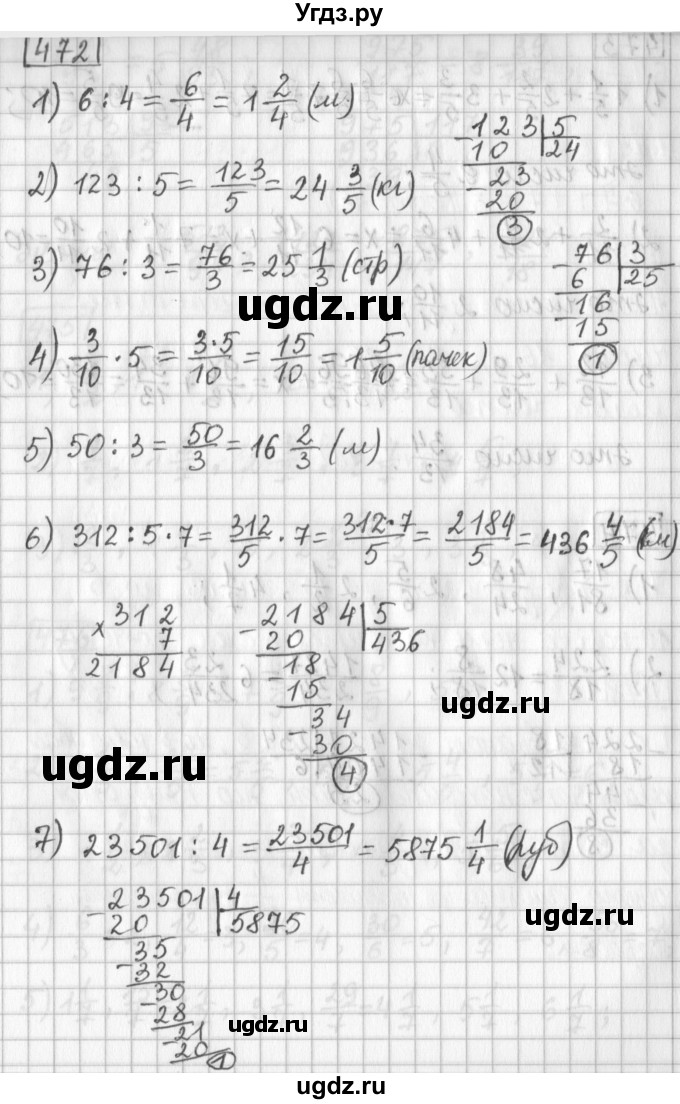 Угdz.ру
472
1) 6 : 4 = 6/4 = 1 2/4 (м)
123 | 5
10 | 24
23
20
3
2) 123 : 5 = 123/5 = 24 3/5 (кг)
3) 76 : 3 = 76/3 = 25 1/3 (стр)
76 | 3
6 | 25
16
15
1
ugdz.ru
4) 3/10 · 5 = 3·5/10 = 15/10 = 1 5/10 (пачек)
5) 50 : 3 = 50/3 = 16 2/3 (м)
6) 312 : 5 · 7 = 312/5 · 7 = 312·7/5 = 2184/5 = 436 4/5 (км)
× 312
7
2184
2184 | 5
20 | 436
18
15
34
30
4
ugdz.ru
ugdz.ru
7) 23501 : 4 = 23501/4 = 5875 1/4 (руб)
23501 | 4
20 | 5875
35
32
30
28
21
20
1
ugdz.ru
ugdz.ru
ugdz.ru